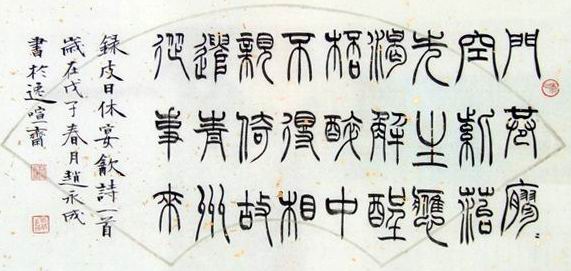 門巷寥〻
空紫苔
先生應
渴解酲
桮醉中
不得相
親倚故
遣青州
從事來
錄皮日休宴㱃詩一首
歲在戊子春月趙永成
書於逸喧齋